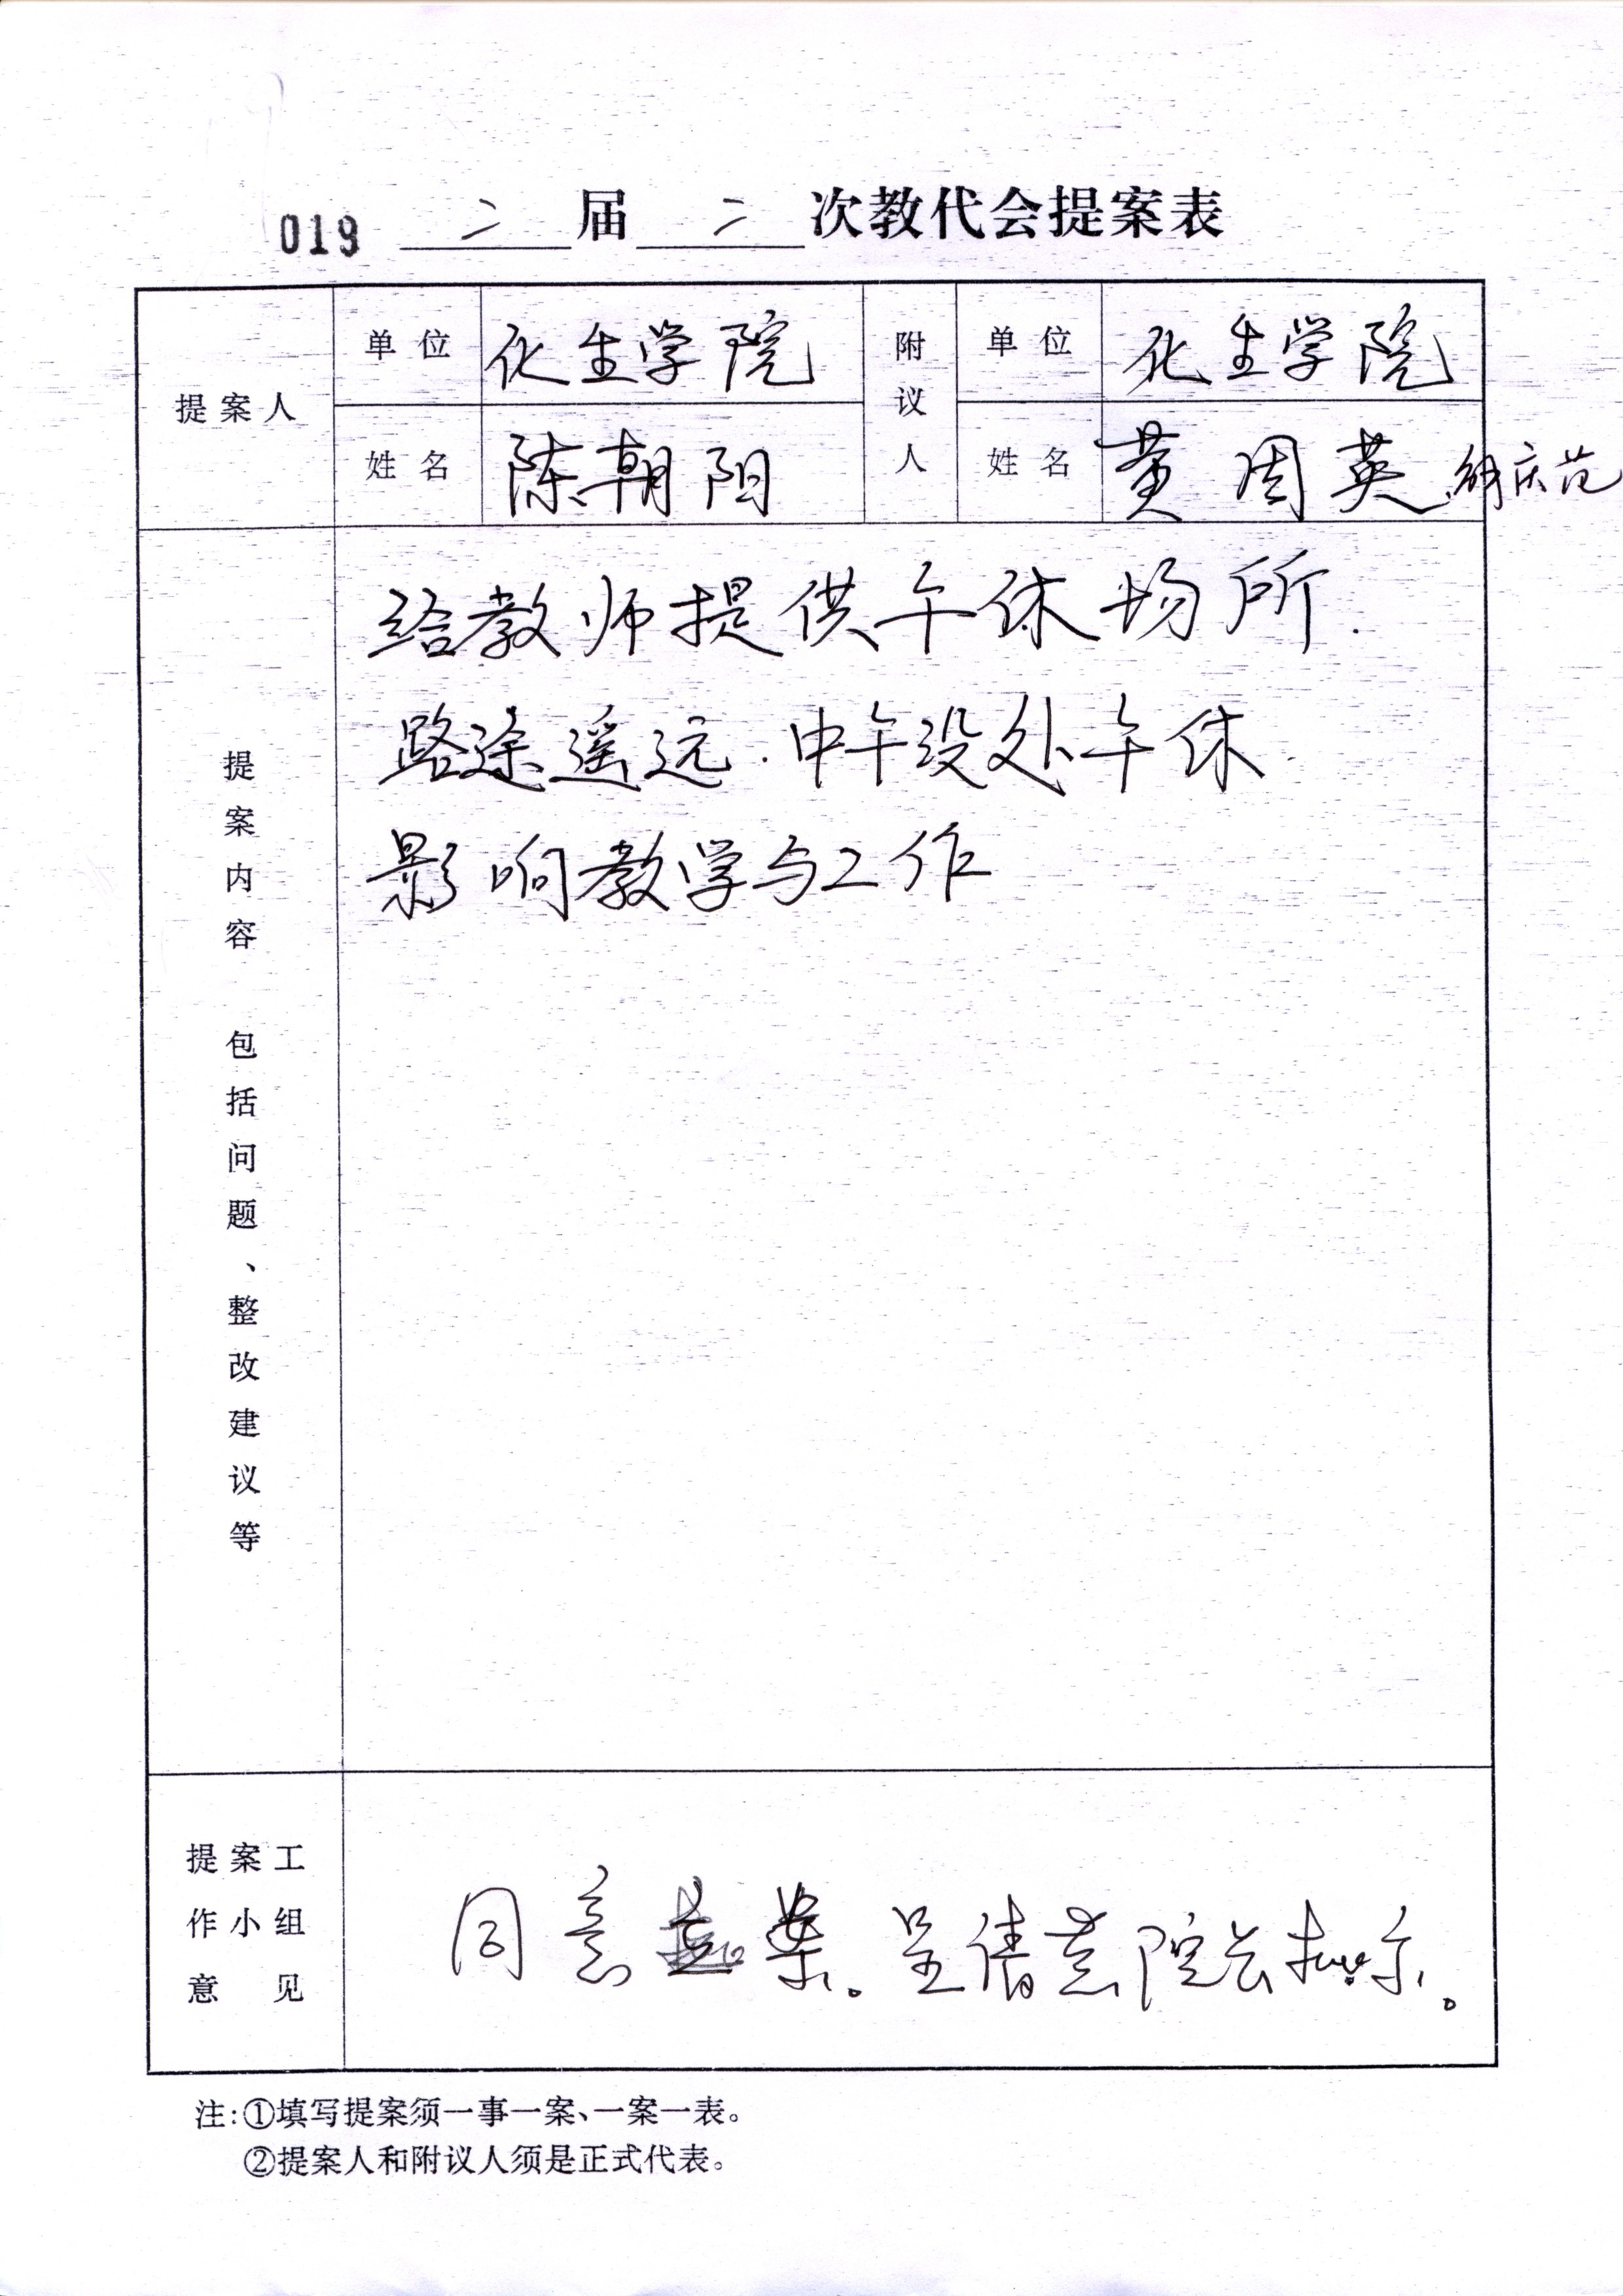 019 二 届 二 次教代会提案表
提案人 单位 化生学院 附议人 单位 化生学院
姓名 陈朝阳 姓名 黄周英 庆范
给教师提供午休场所.
路途遥远.中午没处午休.
影响教学与工作
提案内容 包括问题、整改建议等
提案工作小组意见
同意 案。呈请 院长批示。
注:①填写提案须一事一案、一案一表。
②提案人和附议人须是正式代表。